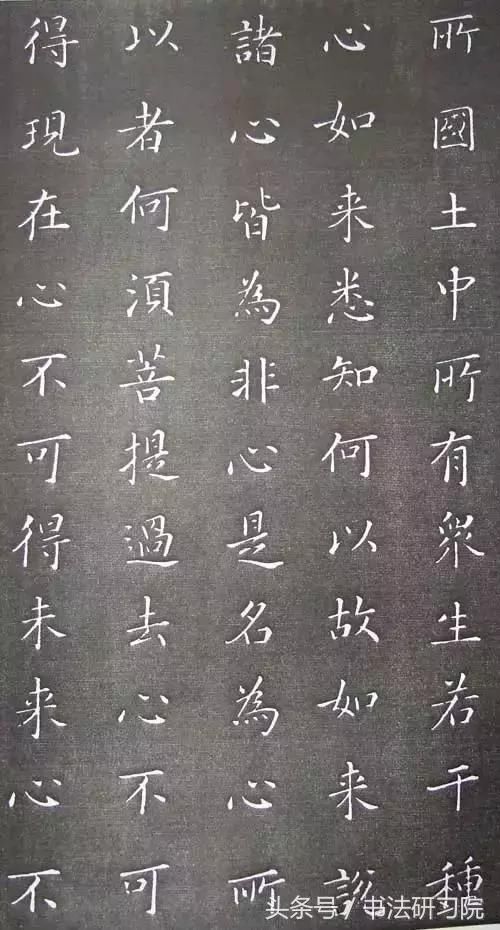 所國土中所有衆生若干種
心如来悉知何以故如来說
諸心皆為非心是名為心所
以者何須菩提過去心不可
得現在心不可得未来心不
头条号/书法研习院